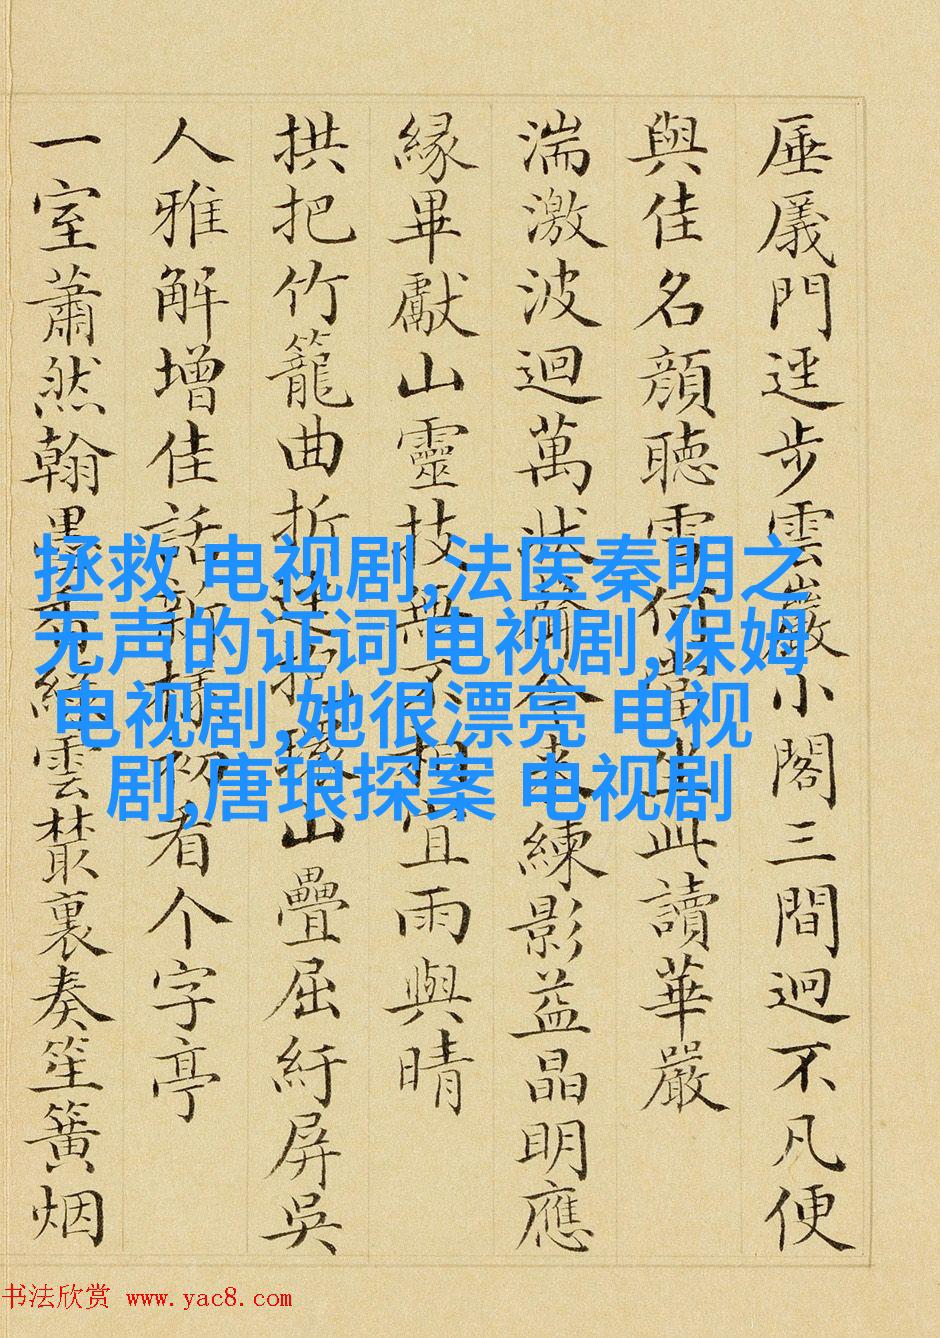 厜㕒門逕步雲巖小閣三間迥不凡便
與佳名顏聽雪何當坐此讀華嚴
湍激波迴萬狀今來練影益晶明應
緣畢獻山靈技無不相宜雨與晴
拱把竹籠曲折山疊屈紆屏吳
人雅解增佳話新構初有个字亭
一室蕭然翰墨雲藂裏奏笙簧烟
拯救 电视剧,法医秦明之
无声的证词 电视剧,保姆
电视剧,她很漂亮 电视
剧,唐琅探案 电视剧
书法欣赏 www.yac8.com